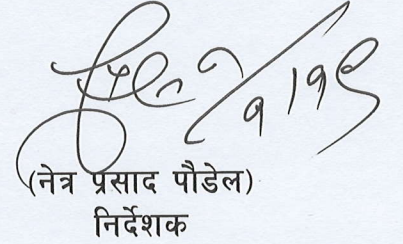 १/१९
(नेत्र प्रसाद पौडेल)
निर्देशक